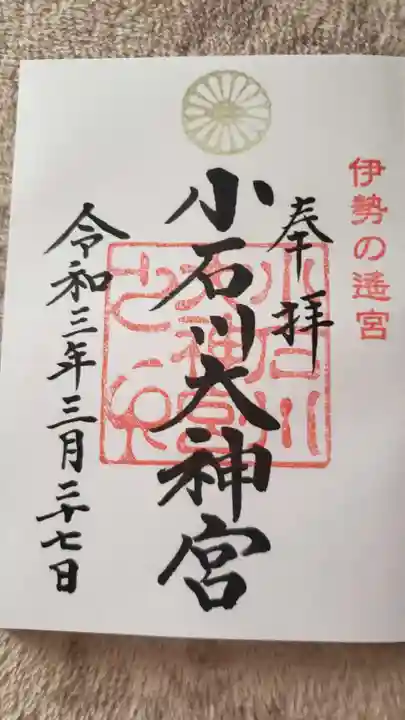 伊勢の遙宮
奉拝
小石川大神宮
令和三年三月二十七日
小石川
大神宮
之印